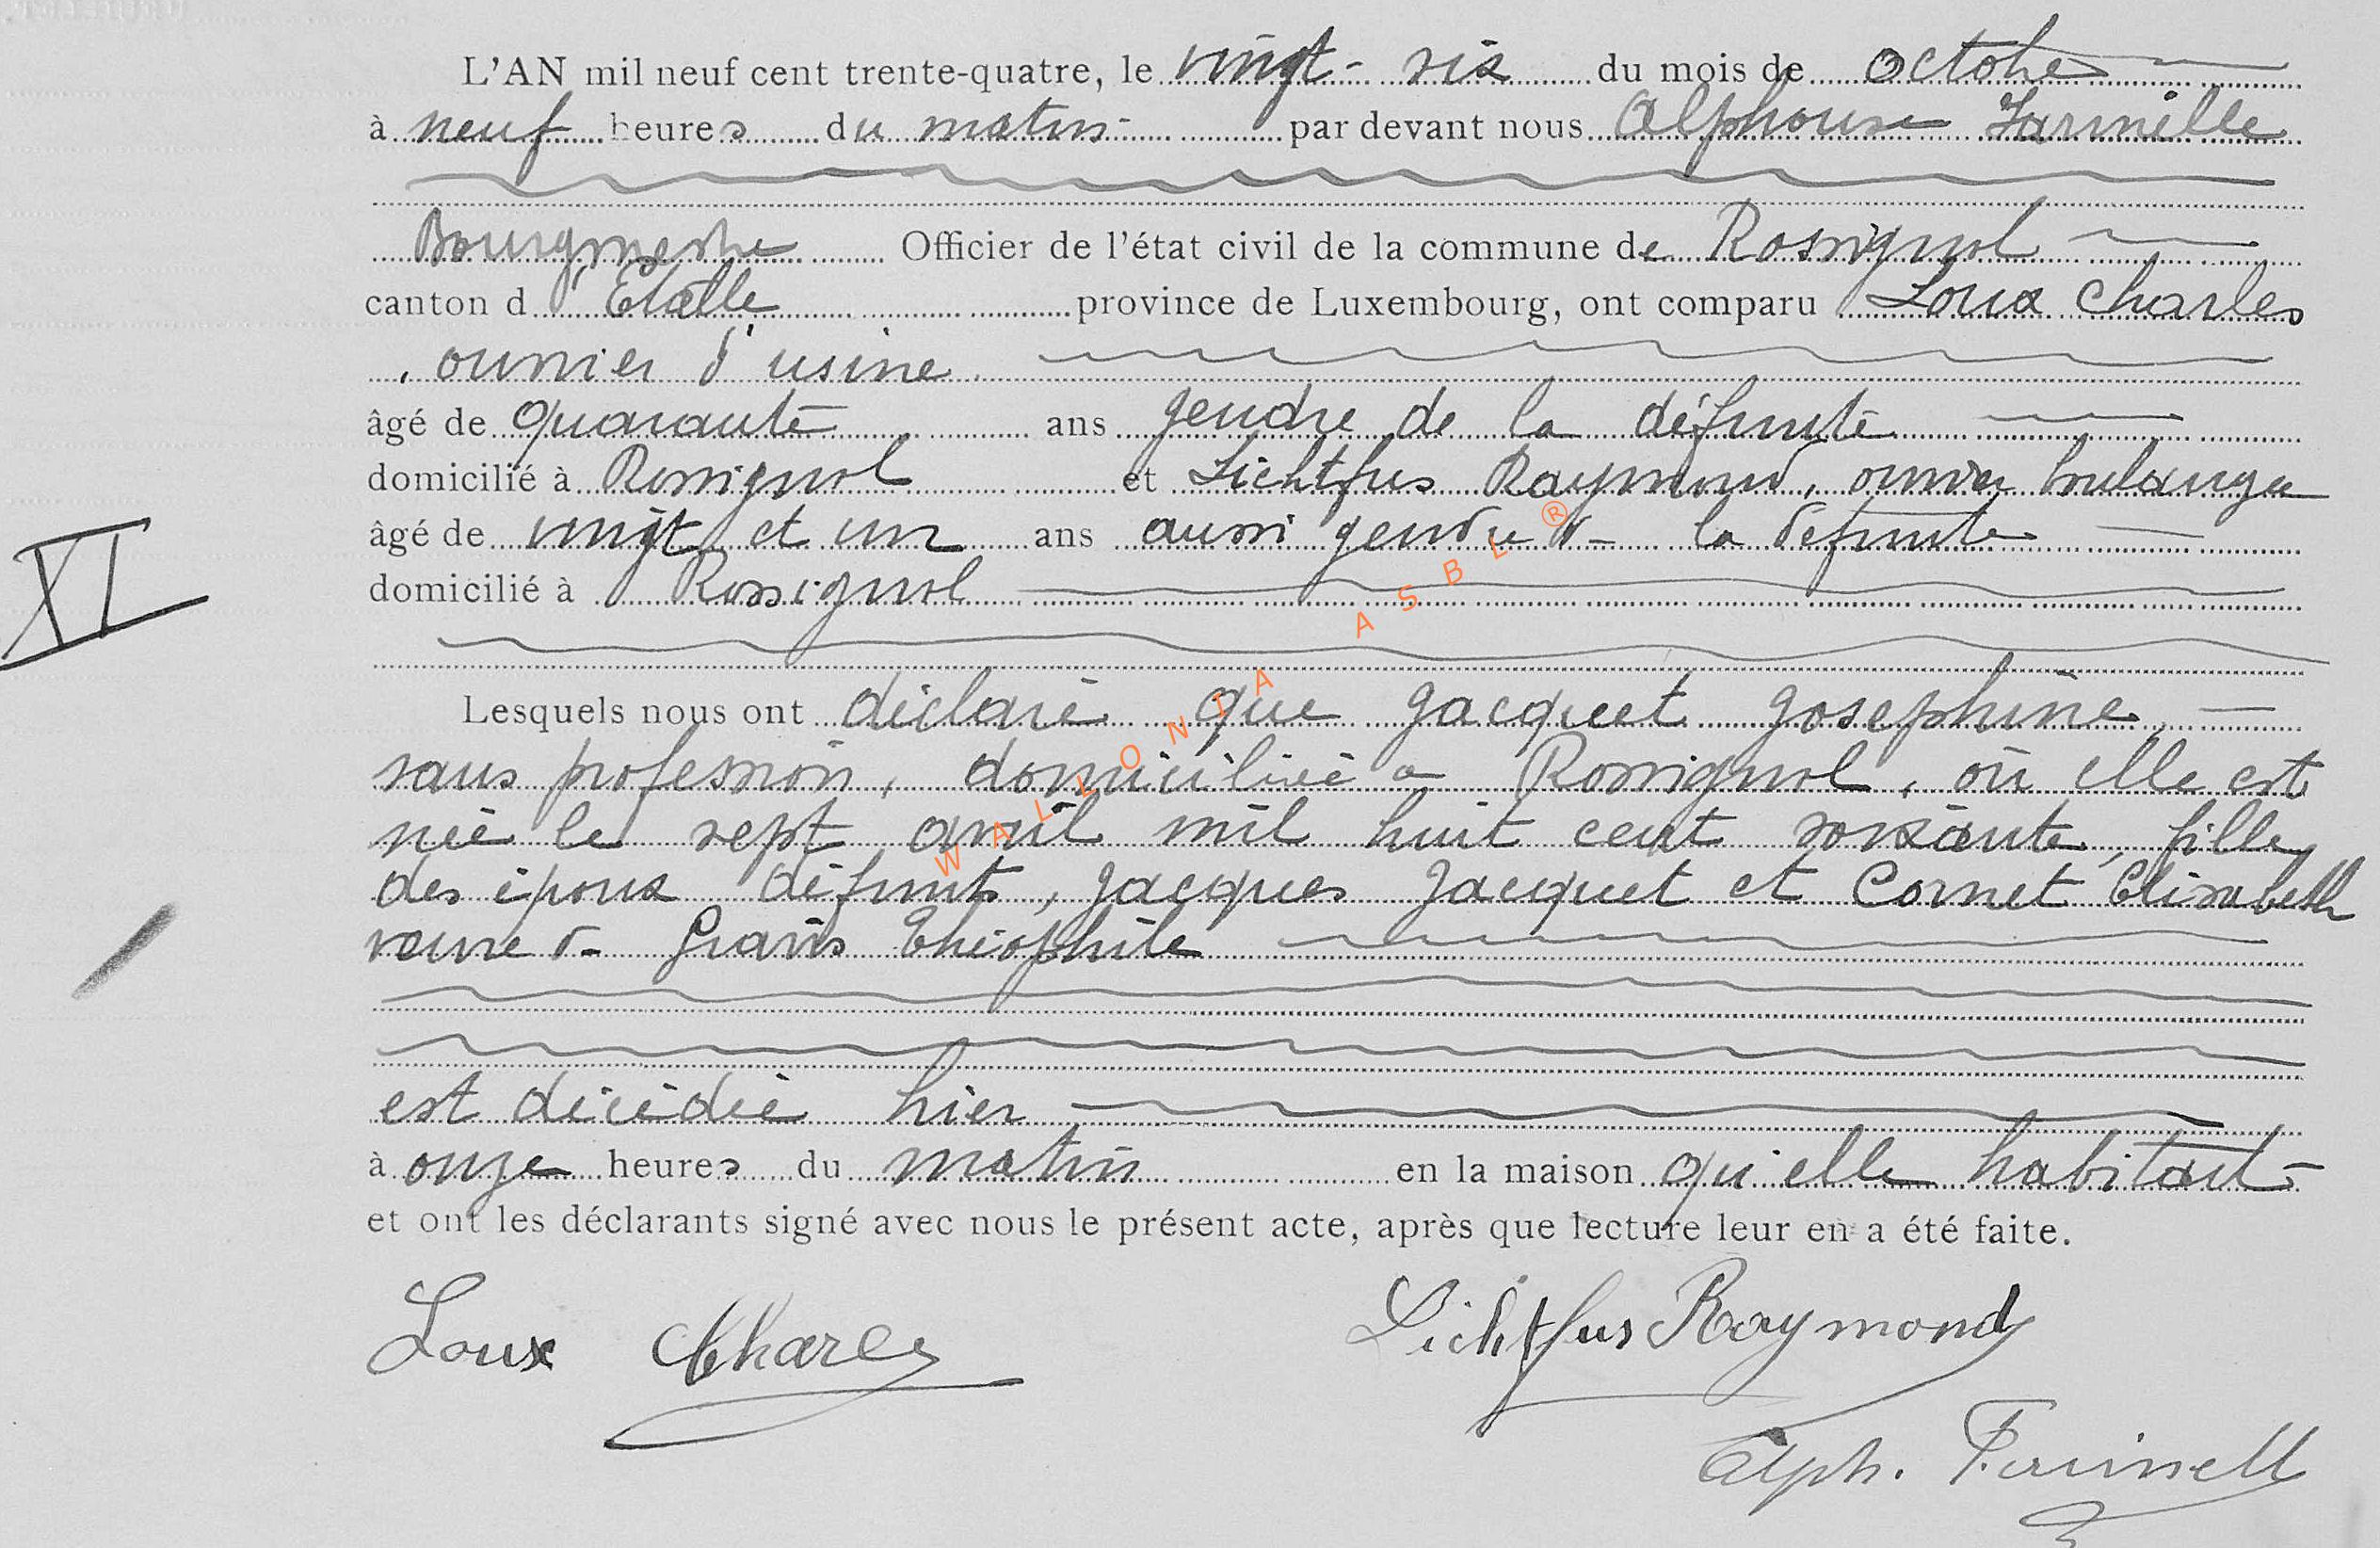 L'AN mil neuf cent trente-quatre, le vingt-six du mois de octobre
à neuf heures du matin par devant nous Alphonse Farinelle
Bourgmestre Officier de l'état civil de la commune de Rossignol
canton d'Etalle province de Luxembourg, ont comparu Loux Charles
, ouvrier d'usine
âgé de quarante ans gendre de la défunte
domicilié à Rossignol et Lichtfus Raymond, ouvrier boulanger
âgé de vingt et un ans aussi gendre de la défunte
domicilié à Rossignol
XI
Lesquels nous ont déclaré que Jacquet Josephine,
sans profession, domiciliée à Rossignol, où elle est
née le sept avril mil huit cent soixante, fille
des époux défunts, Jacques Jacquet et Cornet Elisabeth
veuve de Théophile
est décédée hier
à onze heures du matin en la maison qu'elle habitait
et ont les déclarants signé avec nous le présent acte, après que lecture leur en a été faite.
Loux Charles
Lichtfus Raymond
Alph. Farinelle
WALLONIA ASBL ®